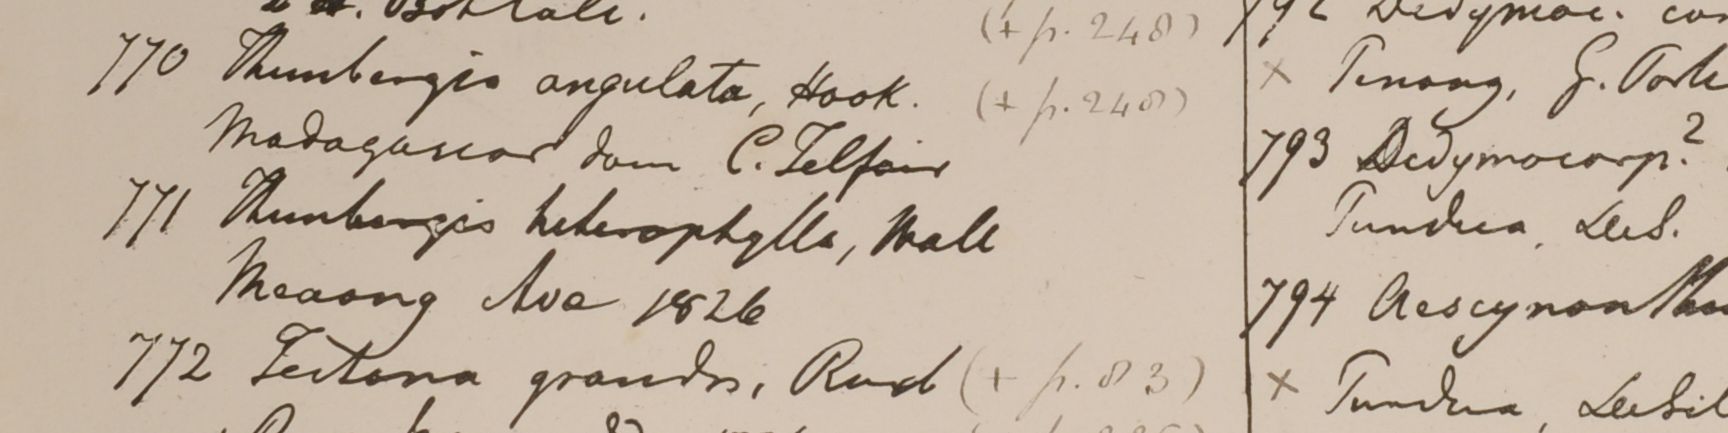 (+ p. 248)
770 Thunbergia angulata, Hook. (+ p. 248)
Madagascar dom C. Telfair
771 Thunbergia heterophylla, Wall
Meaong Ava 1826
772 Tectona grandis, Roxb (+ p. 83)
792 Didymoc.
× Penang, G. Porte
793 Didymocarp.?
Pundua, DeS.
794 Aescynanthu
× Pundua, DeSil